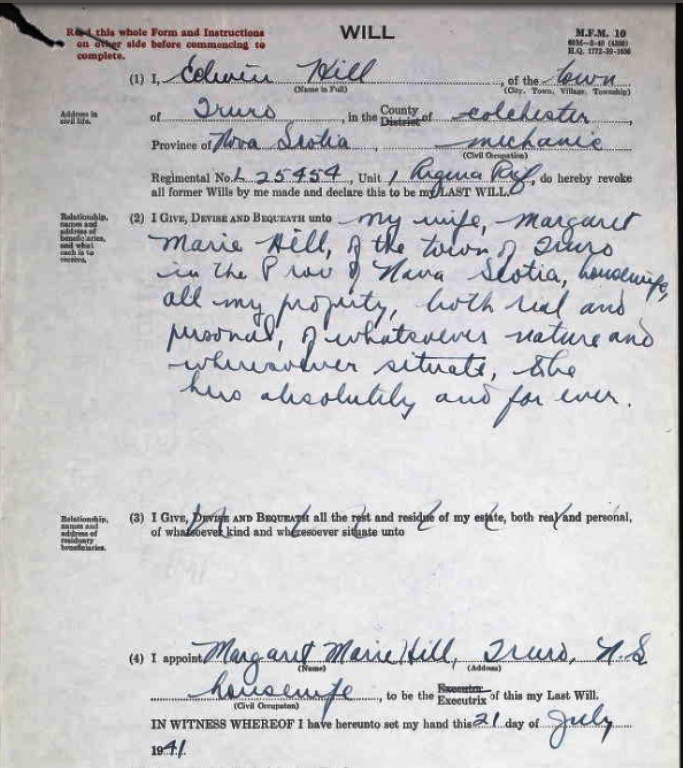 Read this whole Form and Instructions on other side before commencing to complete.
WILL
M.F.M. 10
(1) I, Edwin Hill, of the town
(Name in Full) (City, Town, Village, Township)
Address in civil life.
of Truro, in the County District of colchester,
Province of Nova Scotia, mechanic
(Civil Occupation)
Regimental No. L 25454, Unit 1 Regina Rif, do hereby revoke
all former Wills by me made and declare this to be my LAST WILL.
Relationship, names and address of beneficiaries, and what each is to receive.
(2) I GIVE, DEVISE AND BEQUEATH unto my wife, Margaret
Marie Hill, of the town of Truro
in the Prov of Nova Scotia, housewife,
all my property, both real and
personal, of whatsoever nature and
wheresoever situate, the
hers absolutely and for ever.
Relationship, names and address of residuary beneficiaries.
(3) I GIVE, DEVISE AND BEQUEATH all the rest and residue of my estate, both real and personal,
of whatsoever kind and wheresoever situate unto
(4) I appoint Margaret Marie Hill, Truro, N.S
(Name) (Address)
housewife, to be the Executor Executrix of this my Last Will.
(Civil Occupation)
IN WITNESS WHEREOF I have hereunto set my hand this 21 day of July
1941.